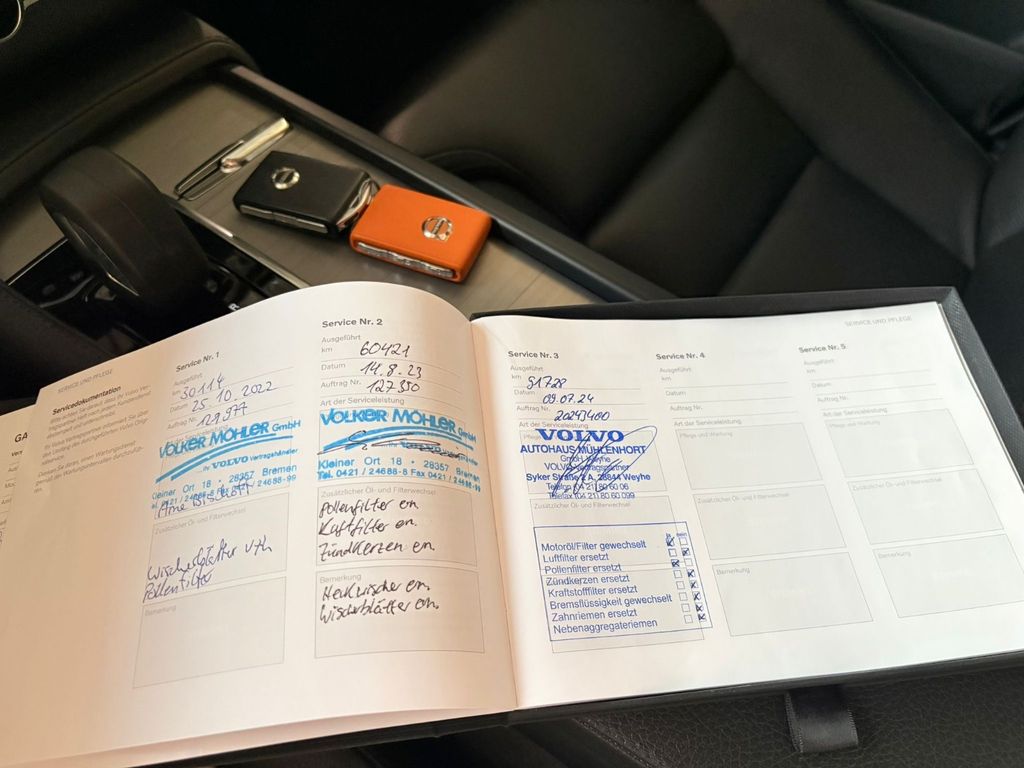 SERVICE UND PFLEGE
Servicedokumentation
Service Nr. 1
Ausgeführt
km 30114
Datum 25.10.2022
Auftrag Nr. 129977
VOLKER MÖHLER GmbH
Ihr VOLVO Vertragshändler
Kleiner Ort 18 · 28357 Bremen
Tel. 0421 / 24688-8 Fax 0421 / 24688-99
Zusätzlicher Öl- und Filterwechsel
Wischerblätter vuh
Pollenfilter
Bemerkung
Service Nr. 2
Ausgeführt
km 60421
Datum 14.8.23
Auftrag Nr. 127350
Art der Serviceleistung
VOLKER MÖHLER GmbH
Kleiner Ort 18 · 28357 Bremen
Tel. 0421 / 24688-8 Fax 0421 / 24688-99
Zusätzlicher Öl- und Filterwechsel
Pollenfilter en.
Luftfilter en.
Zündkerzen en.
Bemerkung
Heckwischer en.
Wischerblätter en.
SERVICE UND PFLEGE
Service Nr. 3
Ausgeführt
km 91728
Datum 09.07.24
Auftrag Nr. 20243400
Art der Serviceleistung
VOLVO
AUTOHAUS MÜHLENHORT
GmbH Weyhe
VOLVO-Vertragspartner
Syker Straße 2 A, 28844 Weyhe
Telefon (04 21) 80 60 06
Telefax (04 21) 80 60 099
Zusätzlicher Öl- und Filterwechsel
ja nein
Motoröl/Filter gewechselt
Luftfilter ersetzt
Pollenfilter ersetzt
Zündkerzen ersetzt
Kraftstofffilter ersetzt
Bremsflüssigkeit gewechselt
Zahnriemen ersetzt
Nebenaggregateriemen
Service Nr. 4
Ausgeführt
km
Datum
Auftrag Nr.
Art der Serviceleistung
Pflege und Wartung
Zusätzlicher Öl- und Filterwechsel
Bemerkung
Service Nr. 5
Ausgeführt
km
Datum
Auftrag Nr.
Art der Serviceleistung
Pflege und Wartung
Zusätzlicher Öl- und Filterwechsel
Bemerkung
R